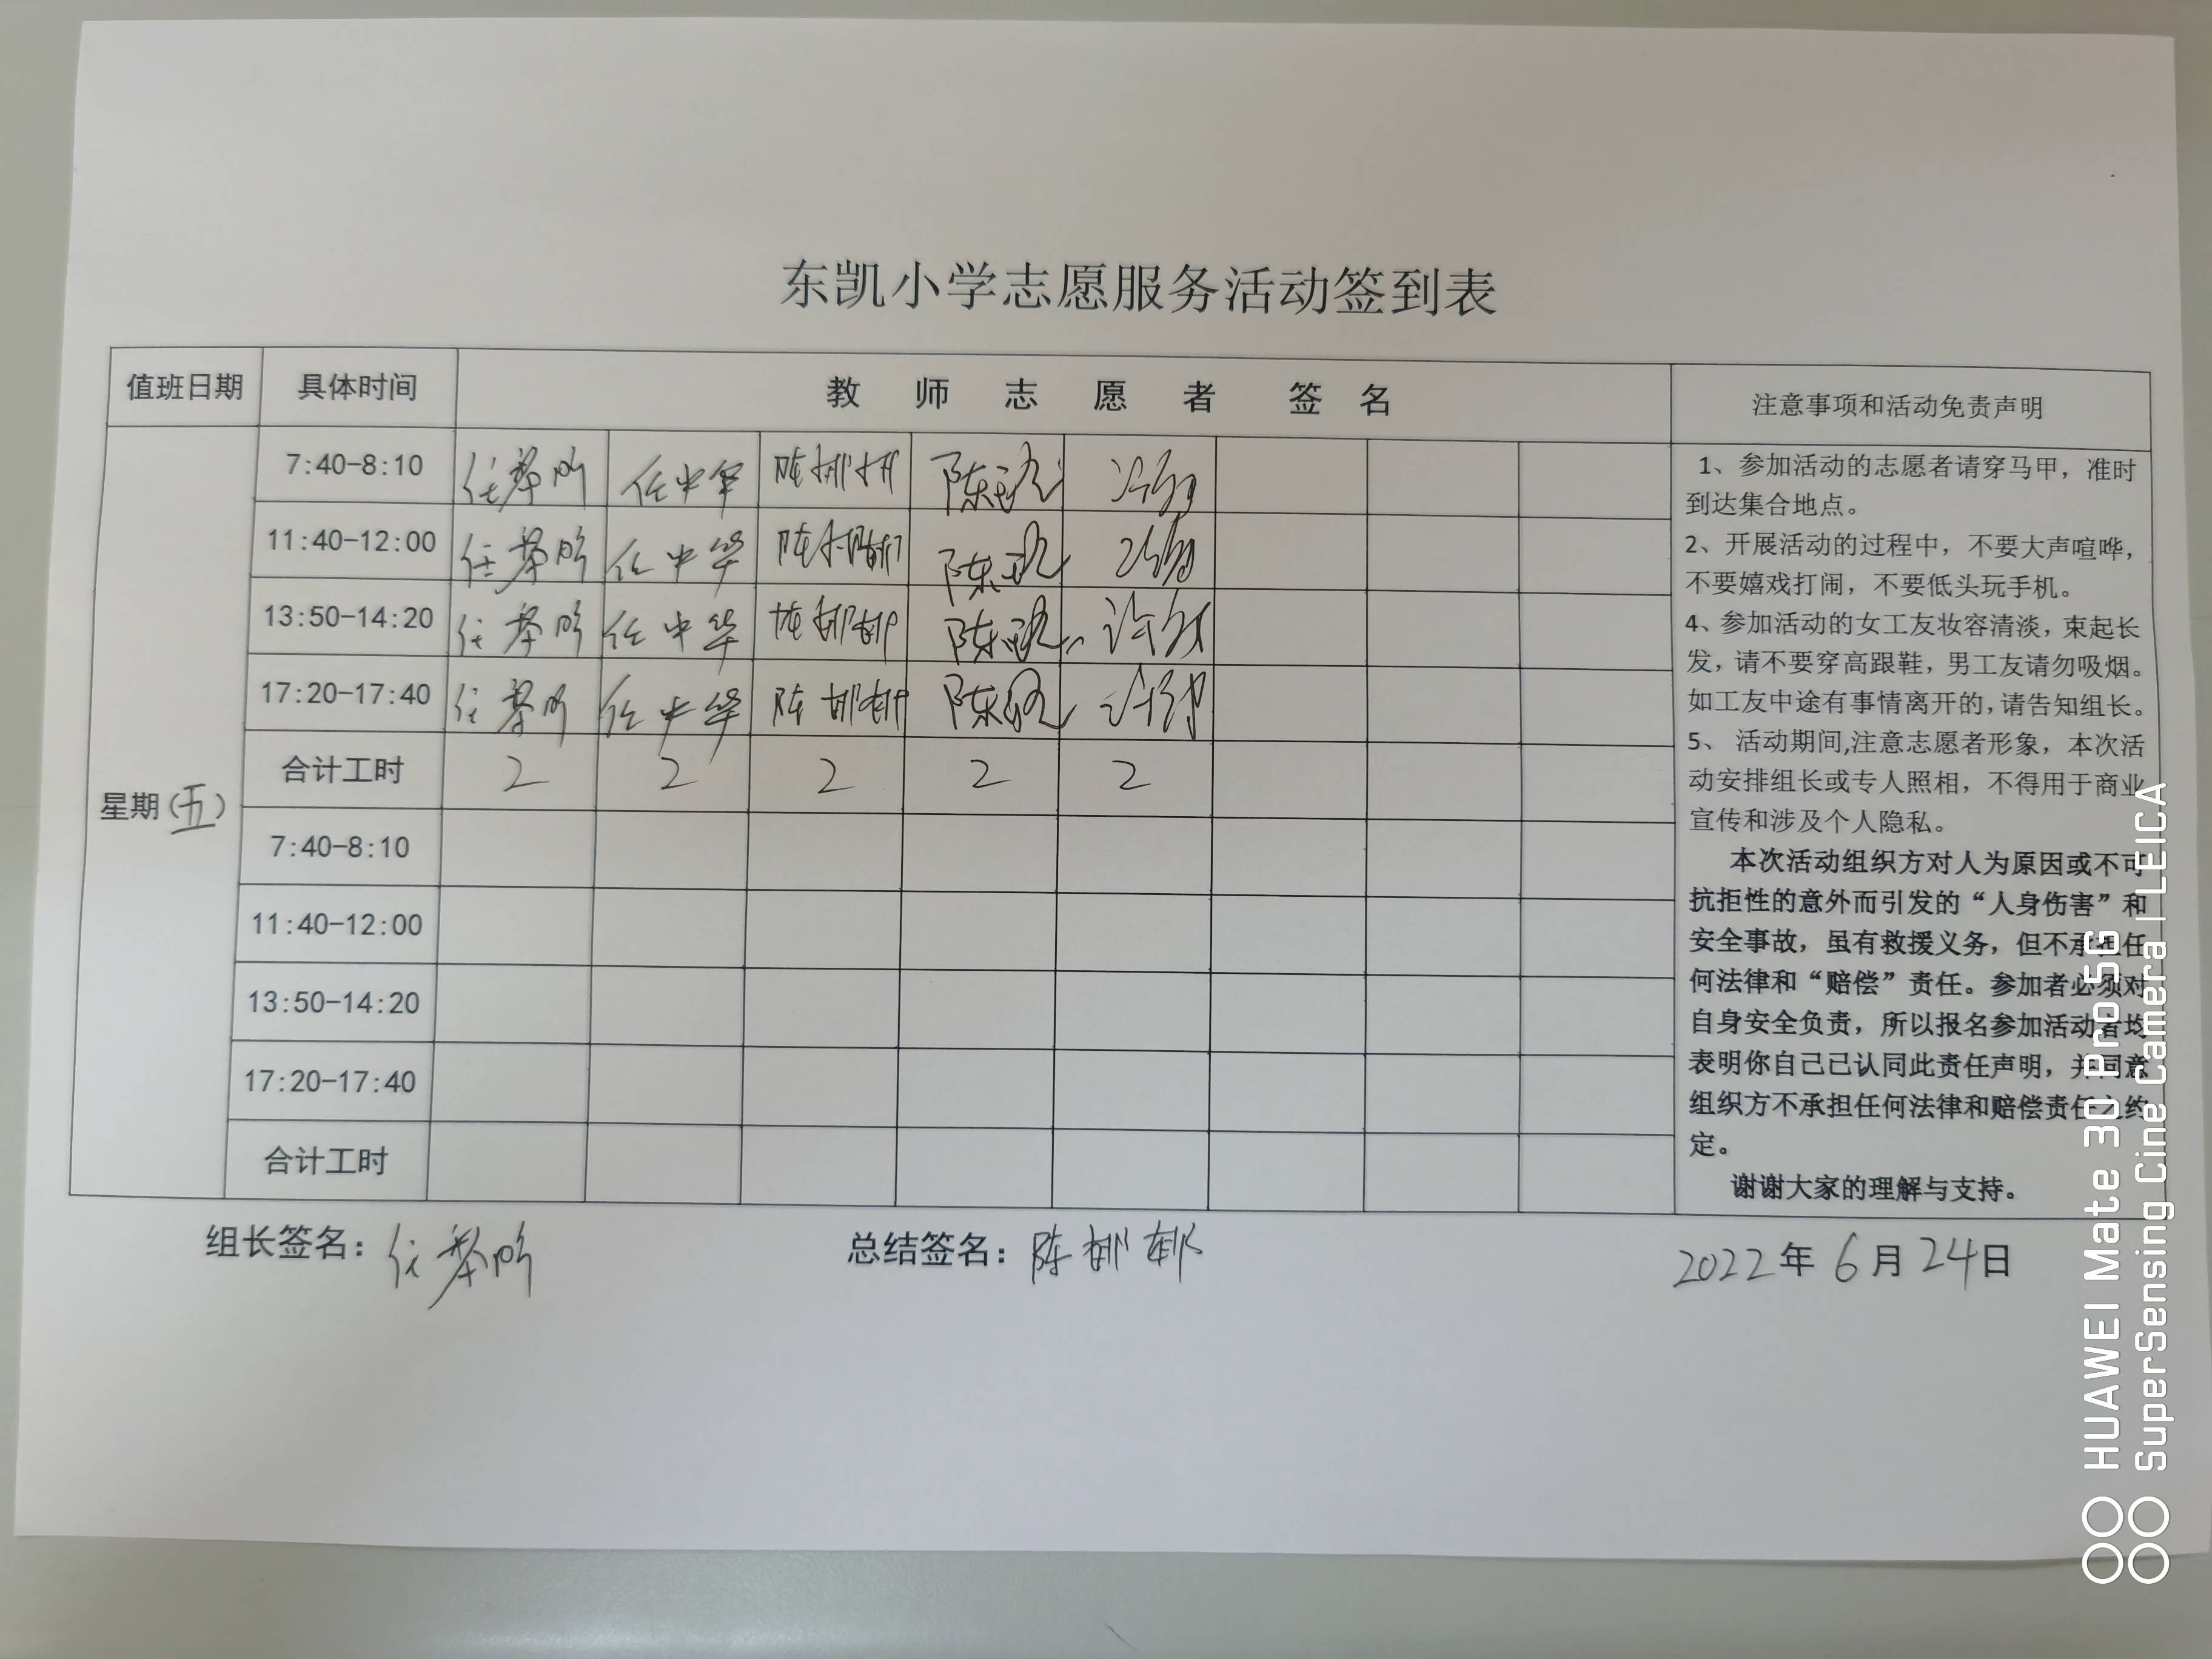 东凯小学志愿服务活动签到表
值班日期 具体时间 教 师 志 愿 者 签 名 注意事项和活动免责声明
星期(五)
7:40-8:10 任 任中华 陈 陈
11:40-12:00 任 任中华 陈 陈
13:50-14:20 任 任中华 陈 许
17:20-17:40 任 任中华 陈 陈 许
合计工时 2 2 2 2 2
7:40-8:10
11:40-12:00
13:50-14:20
17:20-17:40
合计工时
1、参加活动的志愿者请穿马甲，准时
到达集合地点。
2、开展活动的过程中，不要大声喧哗，
不要嬉戏打闹，不要低头玩手机。
4、参加活动的女工友妆容清淡，束起长
发，请不要穿高跟鞋，男工友请勿吸烟。
如工友中途有事情离开的，请告知组长。
5、 活动期间,注意志愿者形象，本次活
动安排组长或专人照相，不得用于商业
宣传和涉及个人隐私。
本次活动组织方对人为原因或不可
抗拒性的意外而引发的“人身伤害”和
安全事故，虽有救援义务，但不承担任
何法律和“赔偿”责任。参加者必须对
自身安全负责，所以报名参加活动者均
表明你自己已认同此责任声明，并同意
组织方不承担任何法律和赔偿责任之约
定。
谢谢大家的理解与支持。
组长签名：任 总结签名：陈 2022年6月24日
HUAWEI Mate 30 Pro 5G
SuperSensing Cine Camera | LEICA